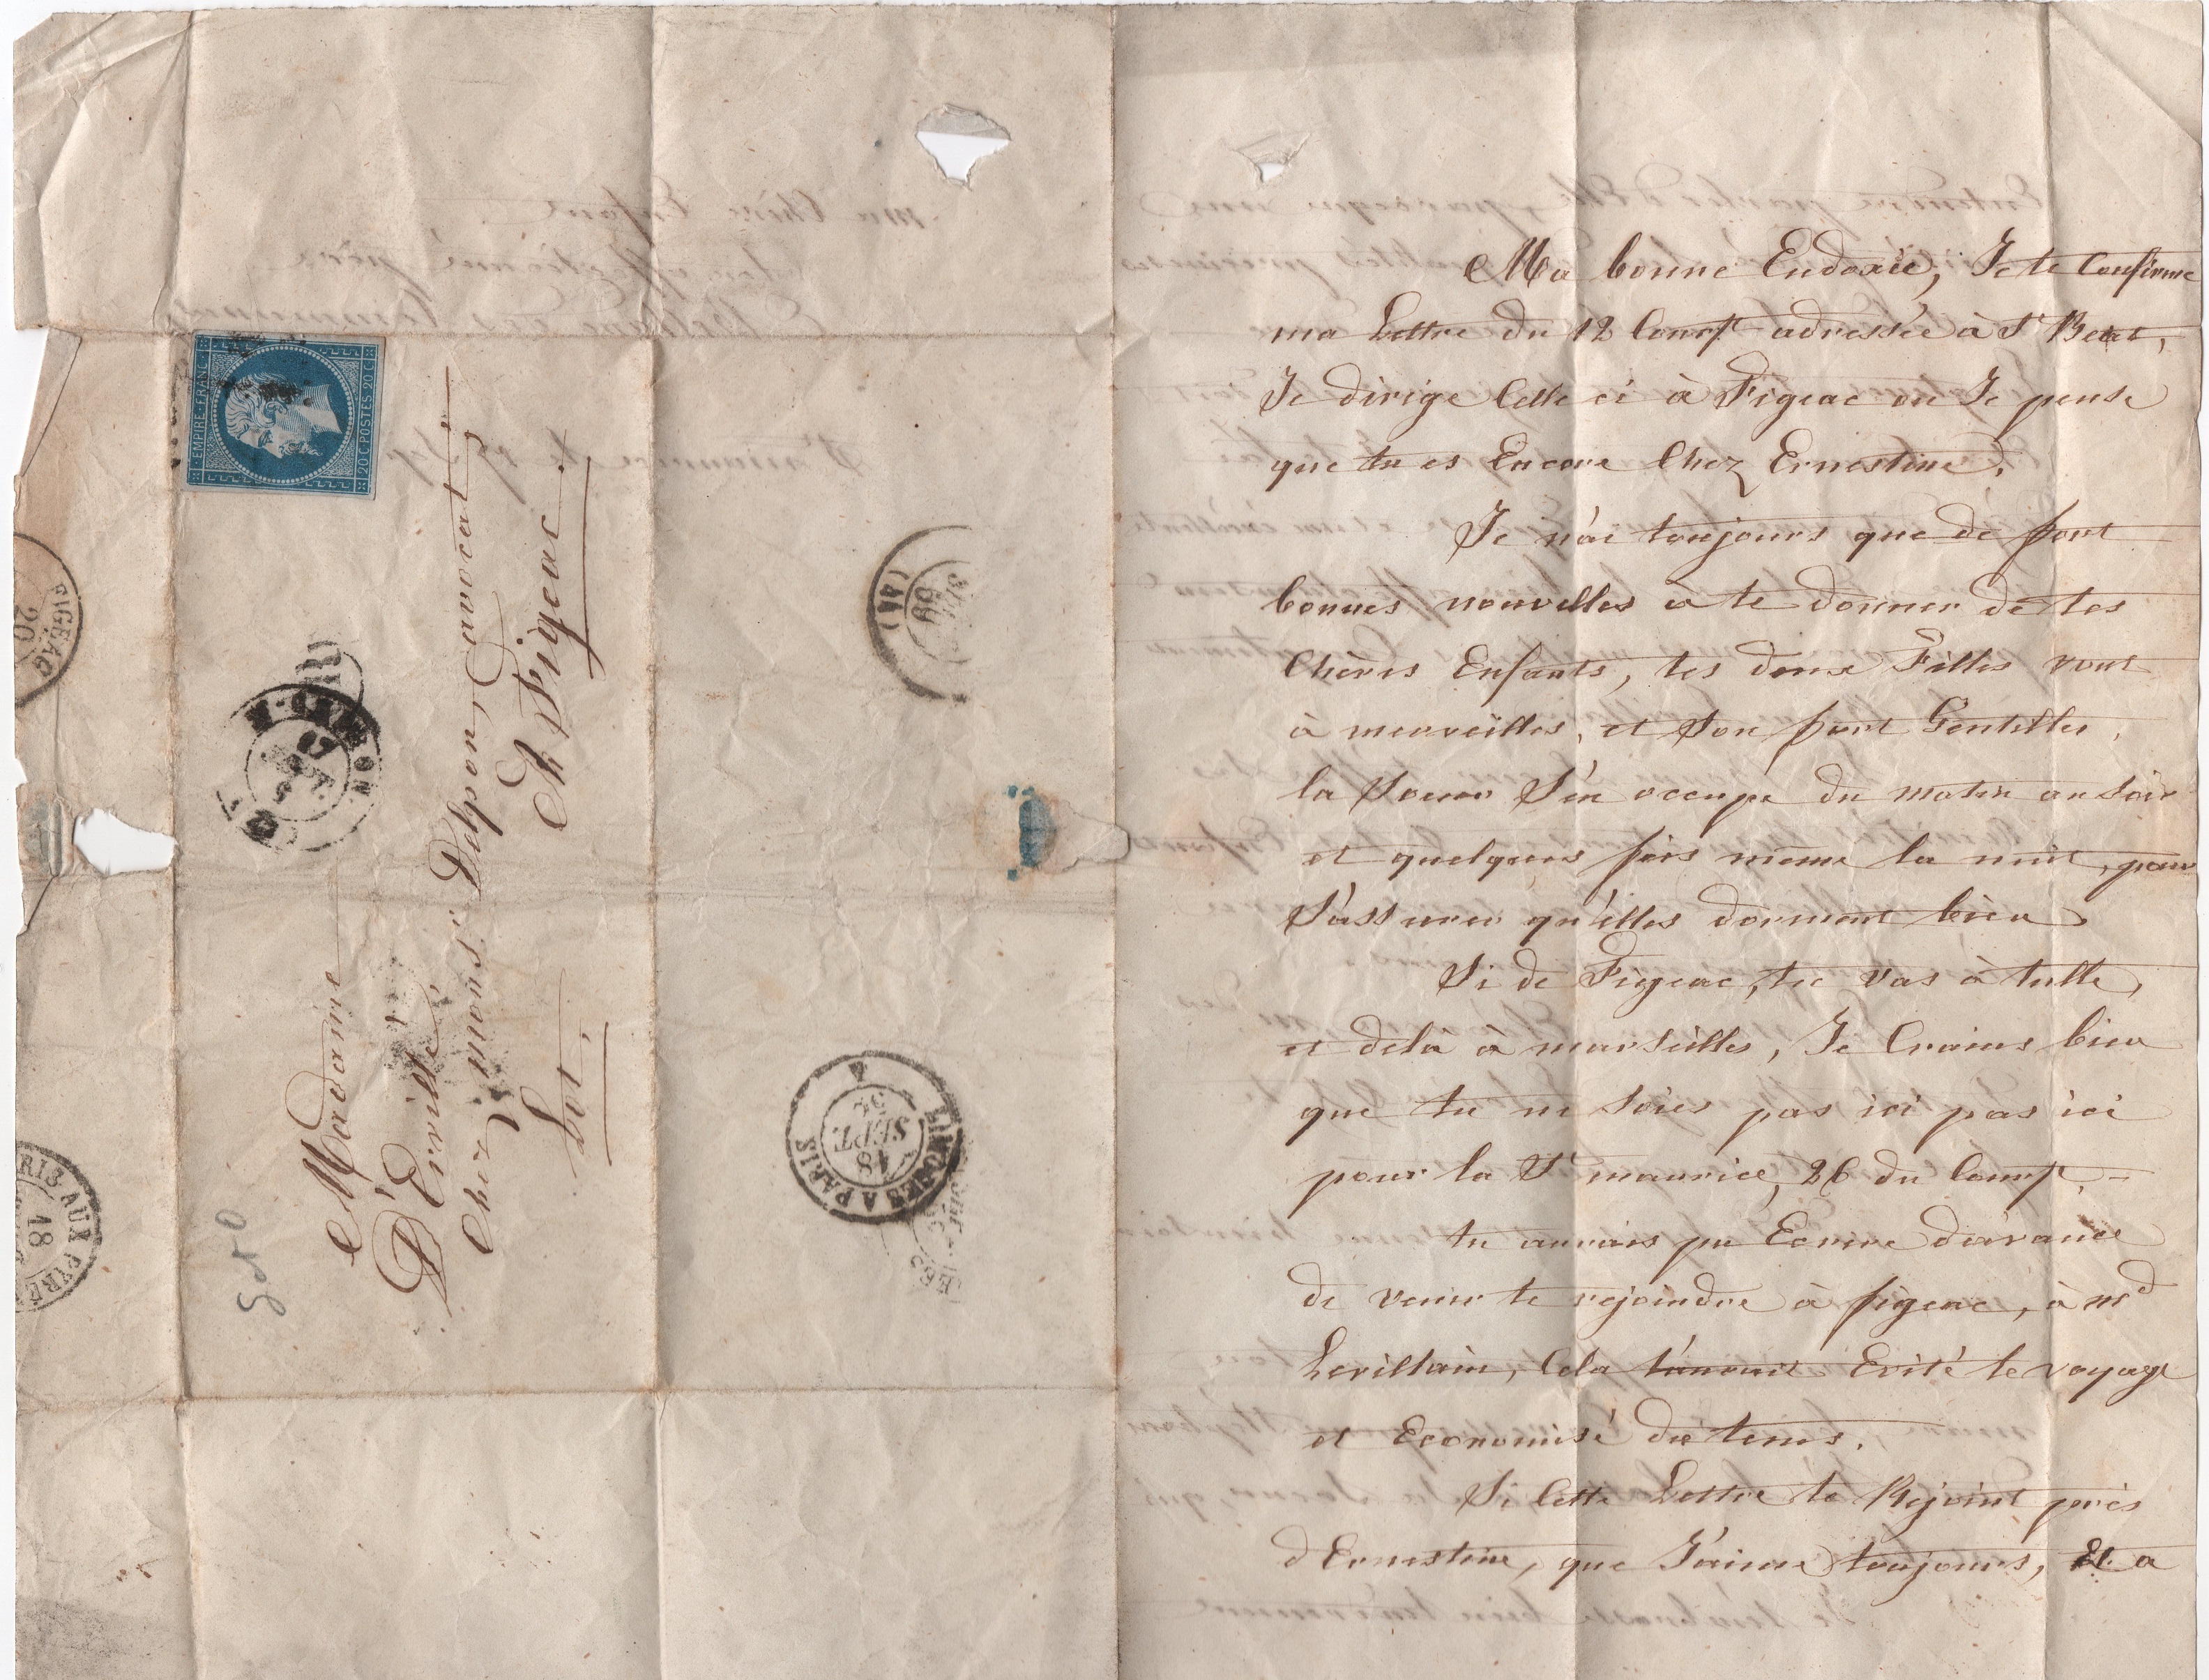 EMPIRE FRANC
20 C POSTES 20 C
Madame
D'Eirville
chez mons.r Delpon, avocat
A Figeac.
Lot.
FIGEAC
20
PARIS AUX PYRE
18
LIMOGES A PARIS
18
SEPT.
Ma bonne Eudoxie, Je te Confirme
ma Lettre du 12 Court adressée à St Beat,
Je dirige Celle ci à Figeac ou Je pense
que tu es Encore Chez Ernestine.
Je n'ai toujours que de fort
bonnes nouvelles a te donner de tes
Chères Enfants, tes deux Filles vont
à merveilles, et Son fort Gentilles,
la Soeur S'en occupe du matin au Soir
et quelques fois même la nuit, pour
S'assurer qu'elles dorment bien
Si de Figeac, tu vas à tulle,
et delà à marseilles, Je Crains bien
que tu ne Sois pas ici pas ici
pour la St maurice, 26 du Court. -
tu aurais pu Ecrire d'avance
de venir te rejoindre à figeac, à md
Levillain, Cela t'auroit Evité le voyage
et Economisé du tems.
Si Cette Lettre te Rejoint près
d'Ernestine, que J'aime toujours, Et a